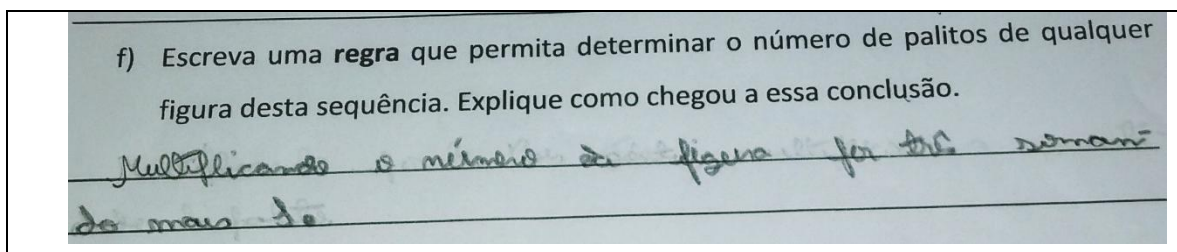 f) Escreva uma regra que permita determinar o número de palitos de qualquer
figura desta sequência. Explique como chegou a essa conclusão.
Multiplicando o número da figura por três soman-
do mais